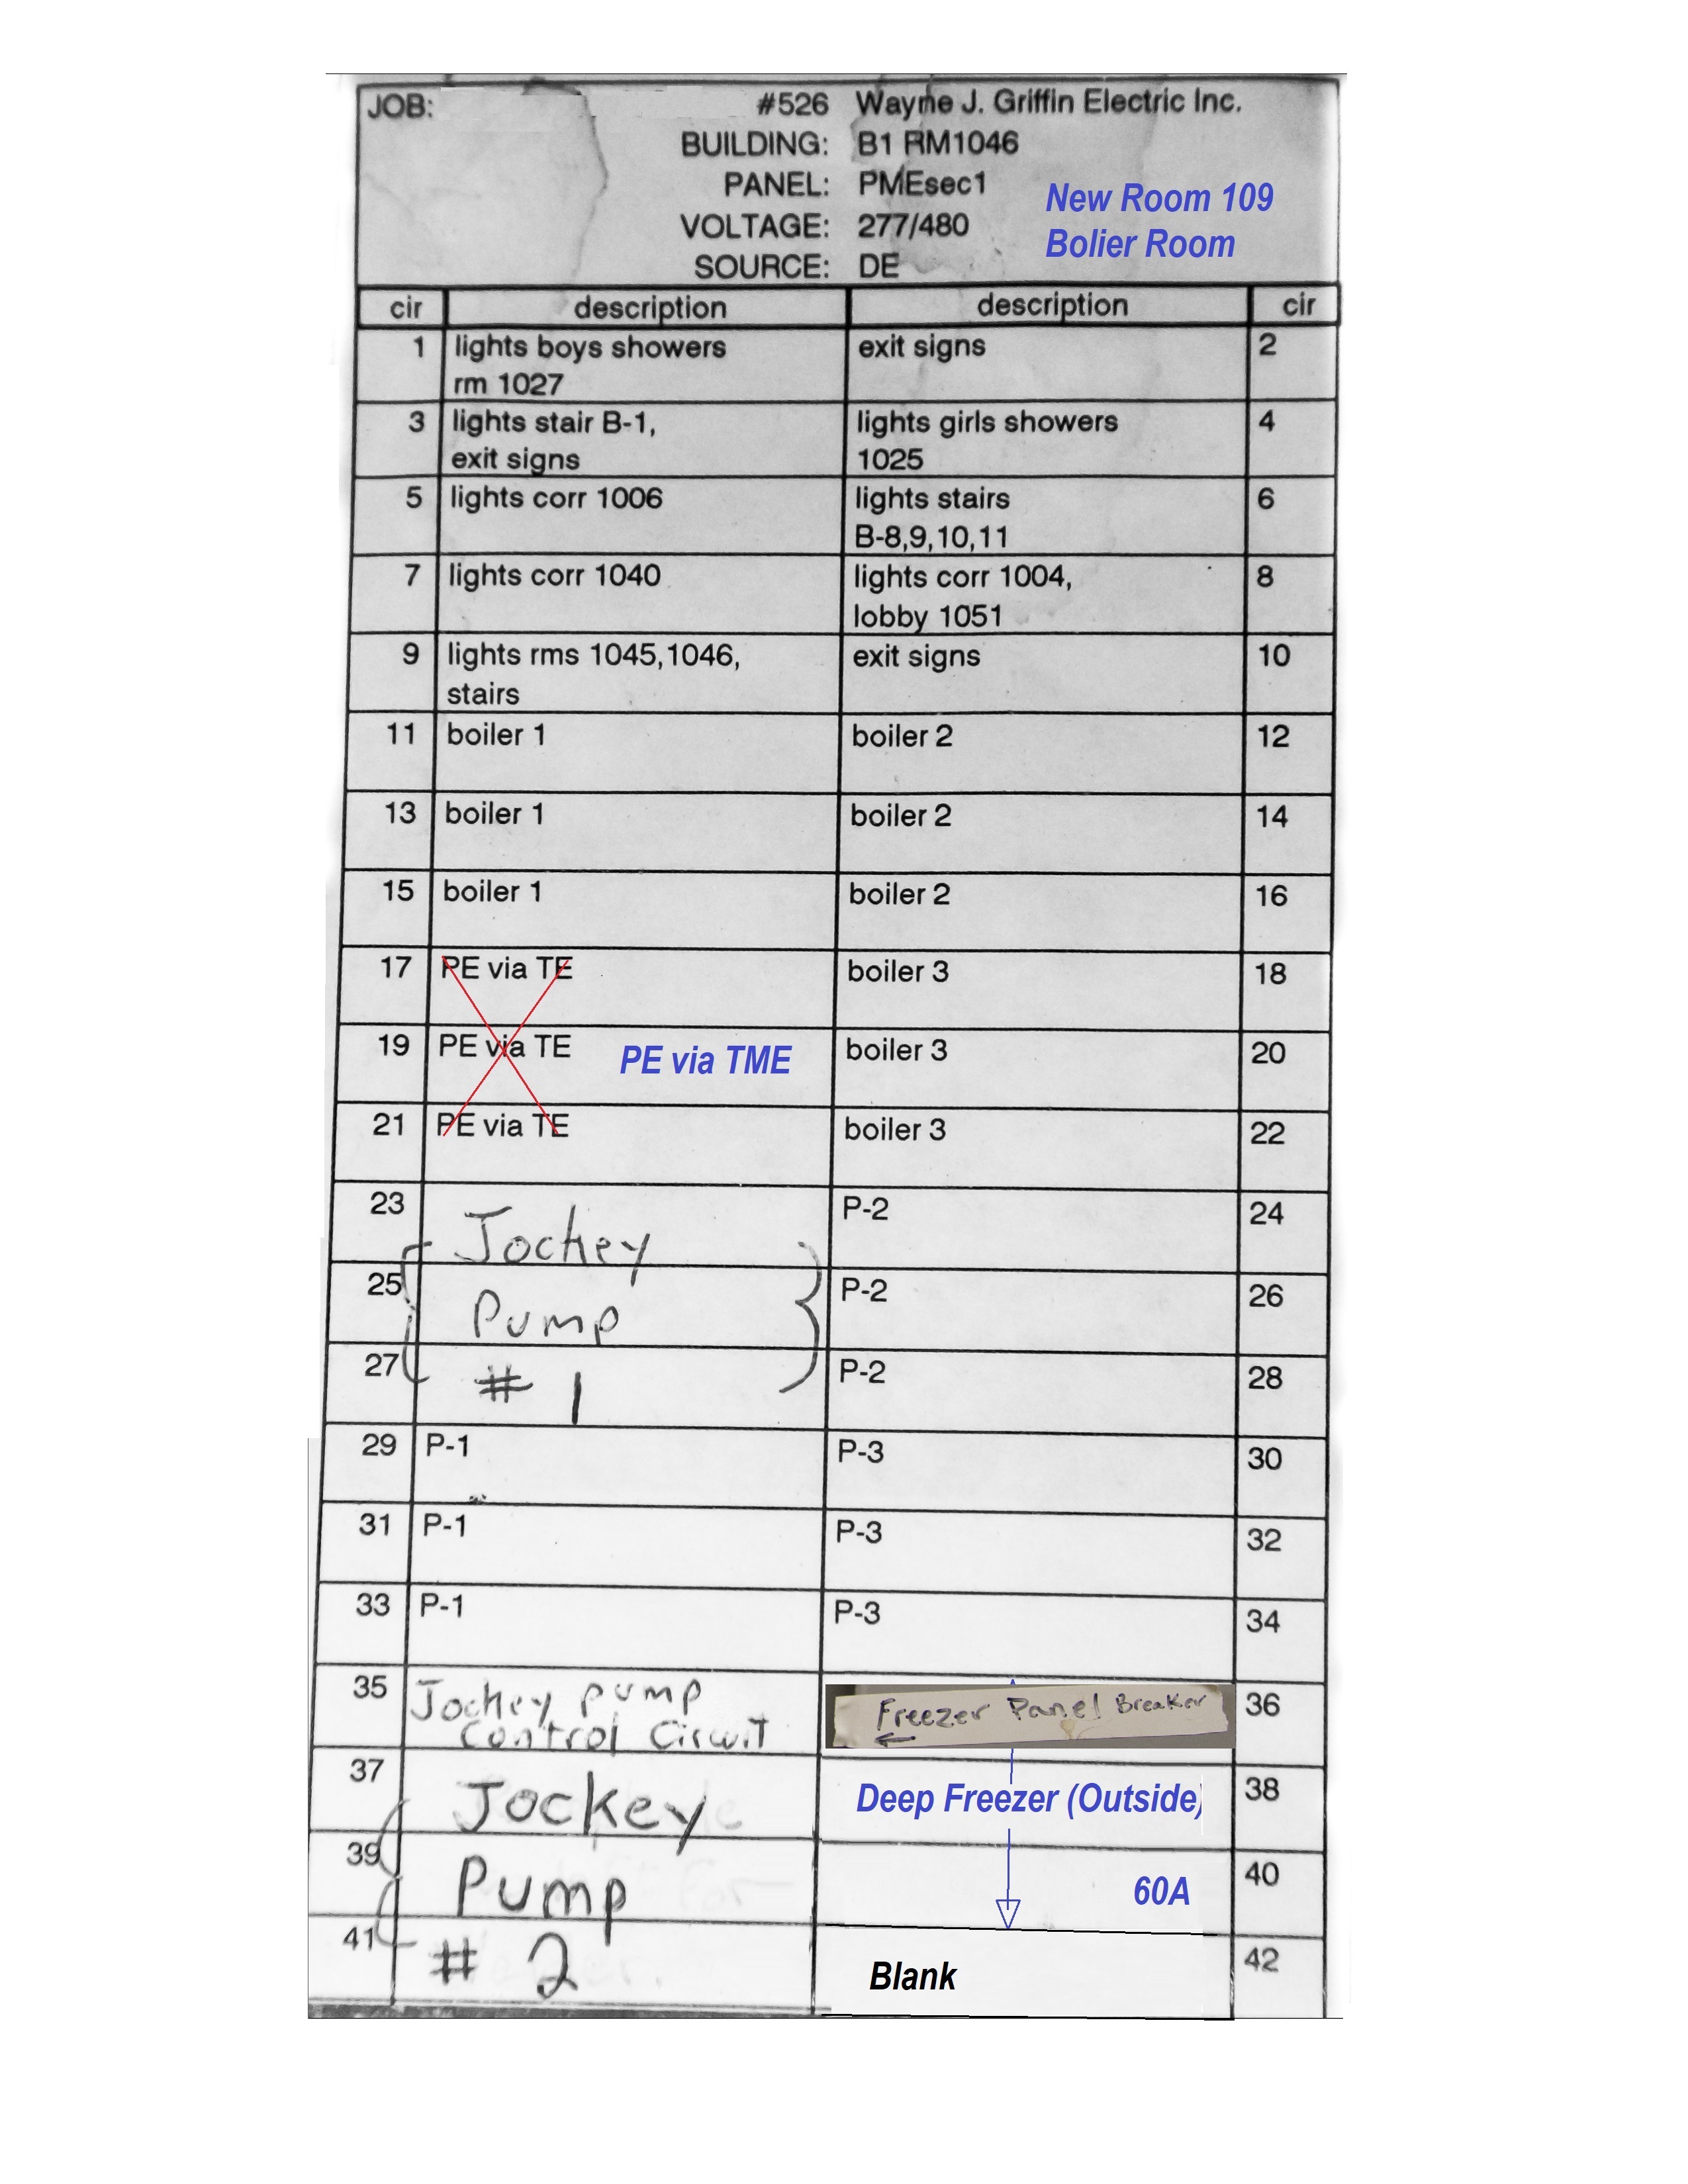 JOB: #526 Wayne J. Griffin Electric Inc.
BUILDING: B1 RM1046
PANEL: PMEsec1
New Room 109
VOLTAGE: 277/480
Bolier Room
SOURCE: DE
cir description description cir
1 lights boys showers exit signs 2
rm 1027
3 lights stair B-1, lights girls showers 4
exit signs 1025
5 lights corr 1006 lights stairs 6
B-8,9,10,11
7 lights corr 1040 lights corr 1004, 8
lobby 1051
9 lights rms 1045,1046, exit signs 10
stairs
11 boiler 1 boiler 2 12
13 boiler 1 boiler 2 14
15 boiler 1 boiler 2 16
17 PE via TE boiler 3 18
19 PE via TE PE via TME boiler 3 20
21 PE via TE boiler 3 22
23 Jockey P-2 24
25 Pump P-2 26
27 # 1 P-2 28
29 P-1 P-3 30
31 P-1 P-3 32
33 P-1 P-3 34
35 Jockey pump Freezer Panel Breaker 36
Control Circuit
37 Jockey Deep Freezer (Outside) 38
39 Pump 60A 40
41 # 2 Blank 42